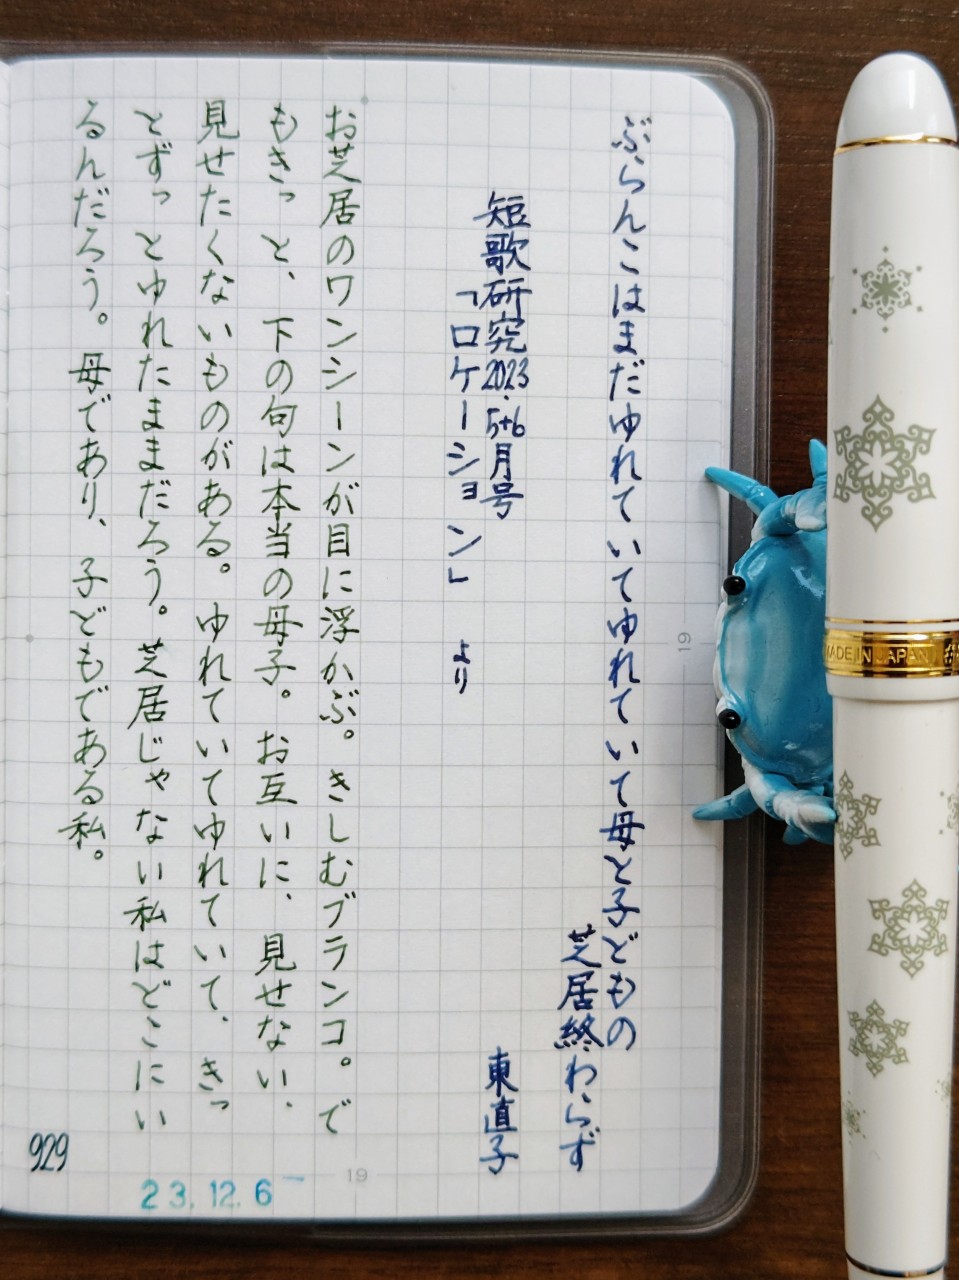 ぶらんこはまだゆれていてゆれていて母と子どもの
芝居終わらず
東直子
短歌研究2023.5+6月号
「ロケーション」より
お芝居のワンシーンが目に浮かぶ。きしむブランコ。で
もきっと、下の句は本当の母子。お互いに、見せない、
見せたくないものがある。ゆれていてゆれていて、きっ
とずっとゆれたままだろう。芝居じゃない私はどこにい
るんだろう。母であり、子どもである私。
929
23.12.6
19
19
MADE IN JAPAN